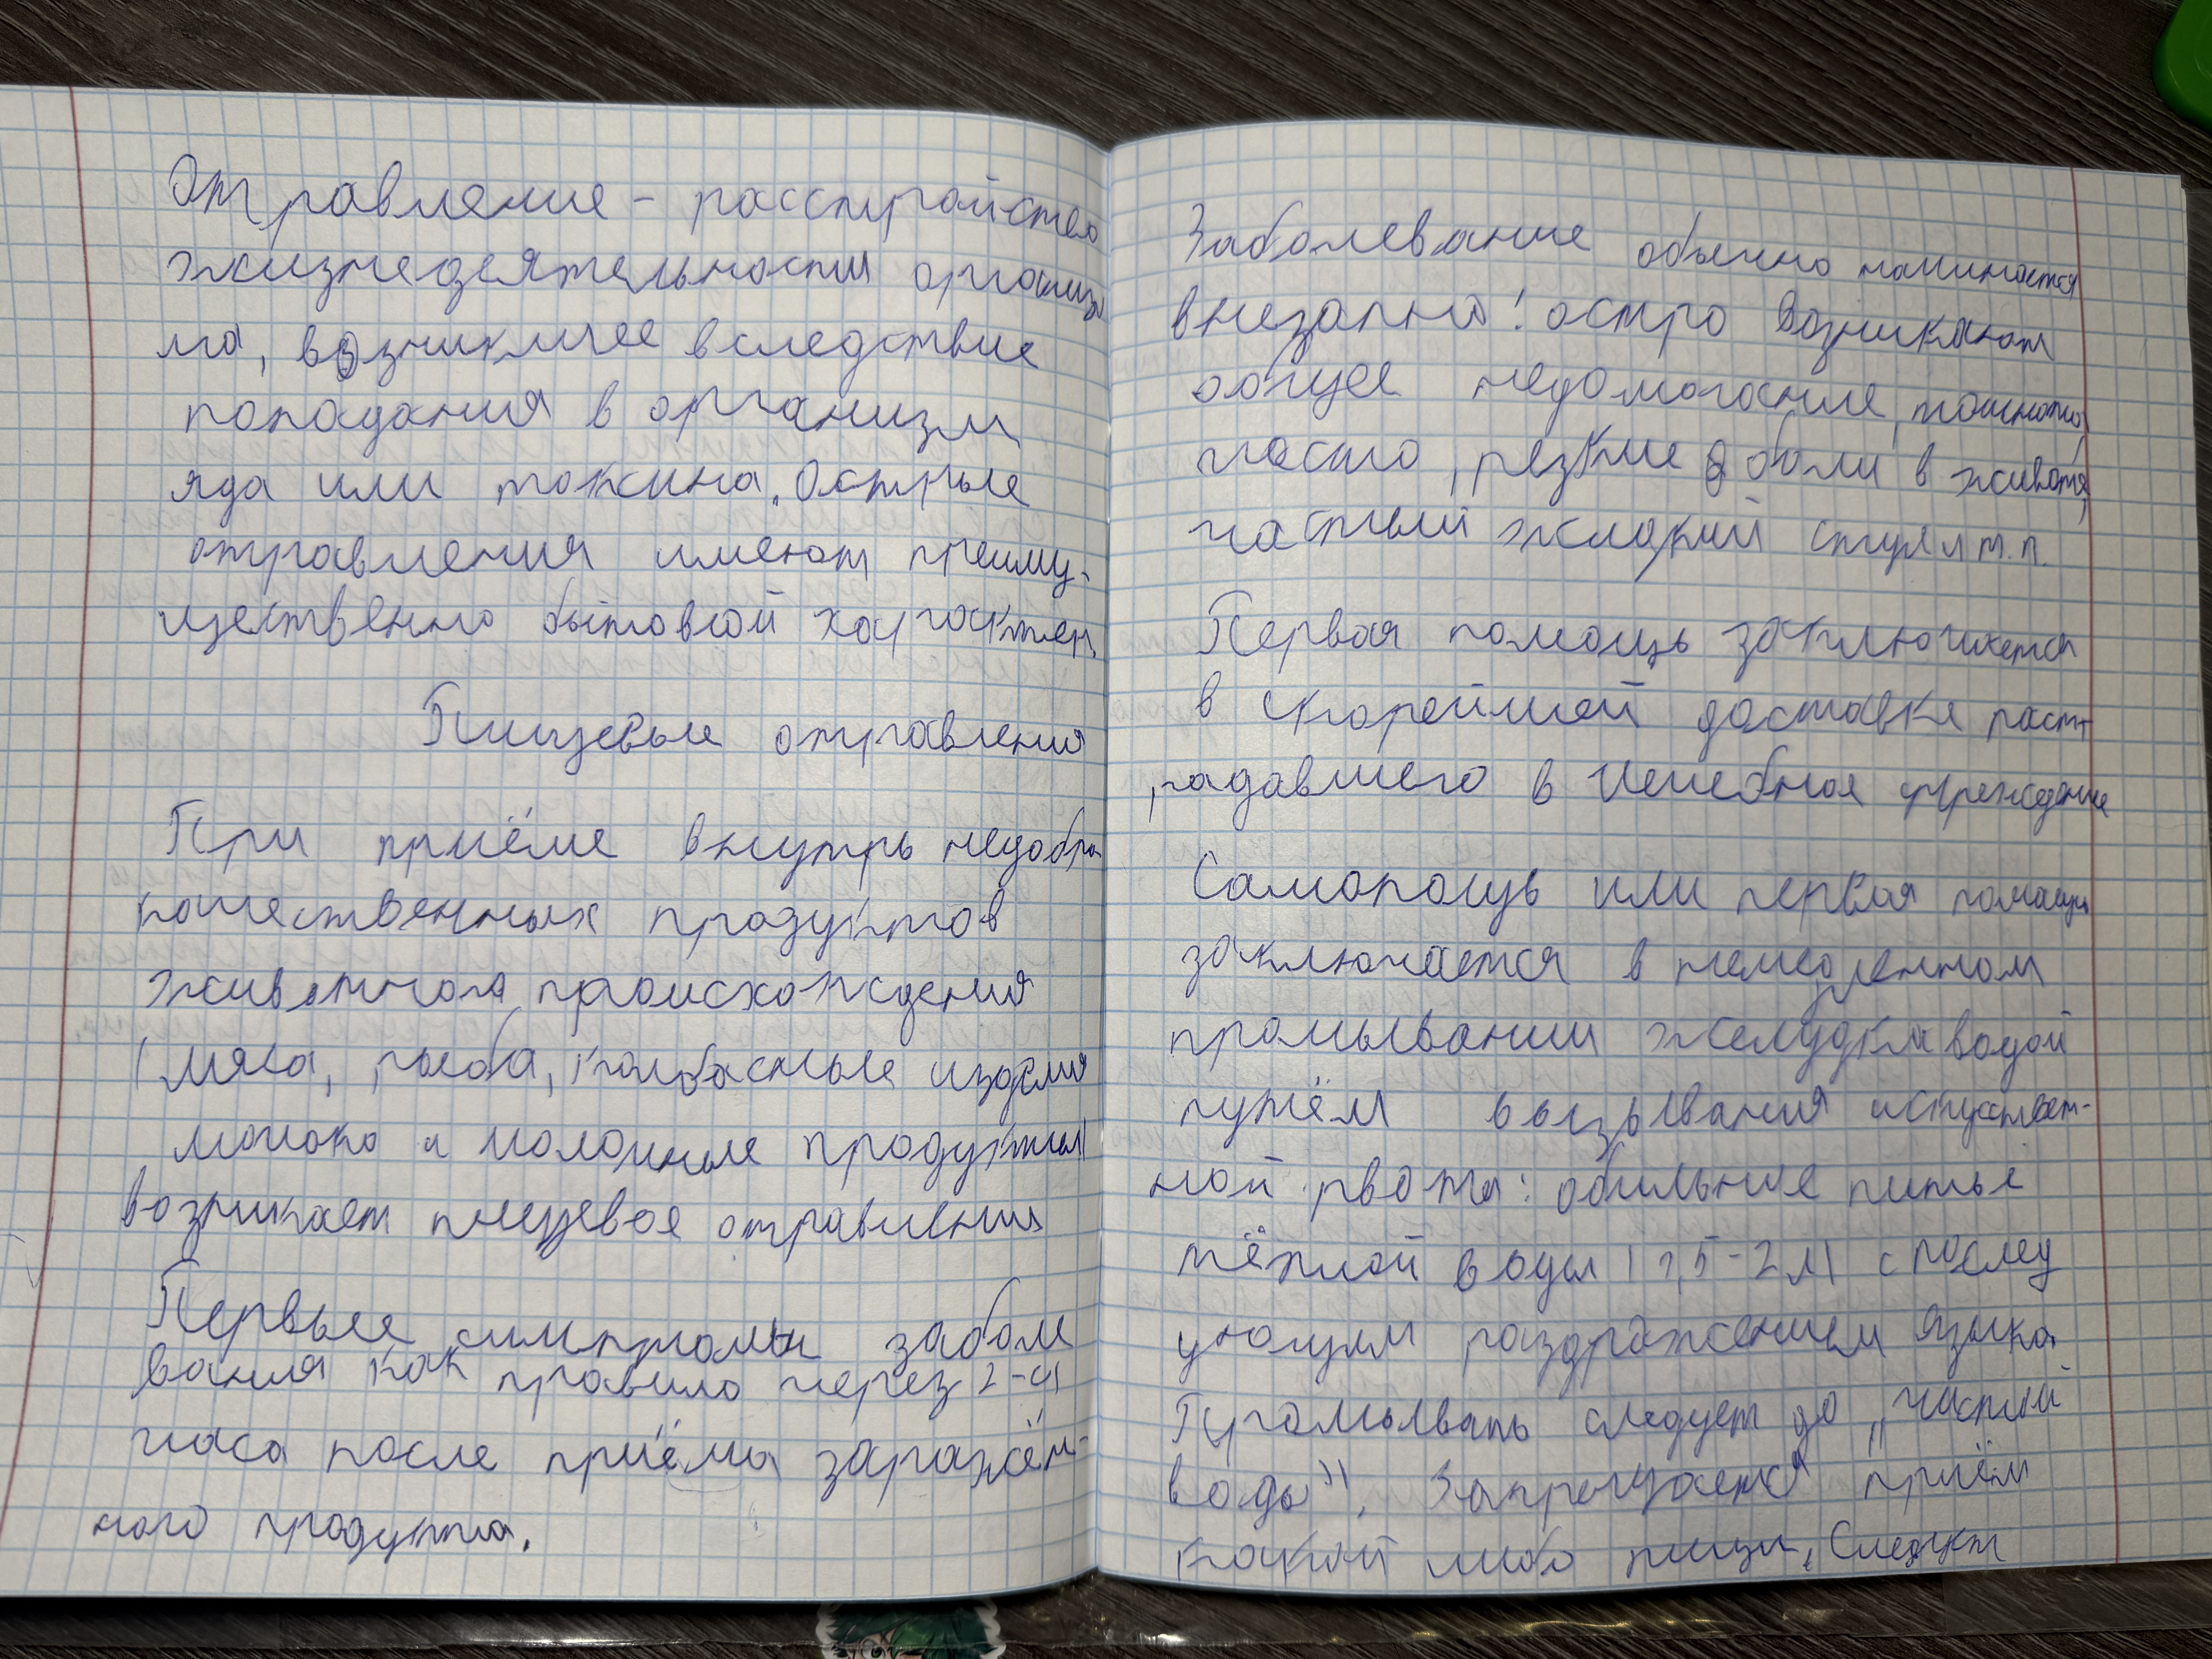 Отравление - расстройство
жизнедеятельности организ
ма, возникшее вследствие
попадания в организм
яда или токсина. Острые
отравления имеют преиму-
щественно бытовой характер.
Пищевые отравления
При приёме внутрь недобро
качественных продуктов
животного происхождения
(мяса, рыба, колбасные изделия
молоко и молочные продукты)
возникает пищевое отравления
Первые симптомы забол
вания как правило через 2-4
часа после приёма заражён-
ного продукта.
Заболевание обычно начинается
внезапно! остро Возникают
общее недомогание, тошнота,
часто, резкие боли в животе,
частый жидкий стул и т.п.
Первая помощь заключается
в скорейшей доставке пост
радавшего в лечебное учреждение
Самопощь или первая помощь
заключается в немедленном
промывании желудка водой
путём вызывания искусствен-
ной рвоты: обильние питье
тёплой воды (1,5-2л) с послед
ующим раздражением языка
Промывать следует до "чистый
воды". Запрещается приём
какой либо пищи. Следует